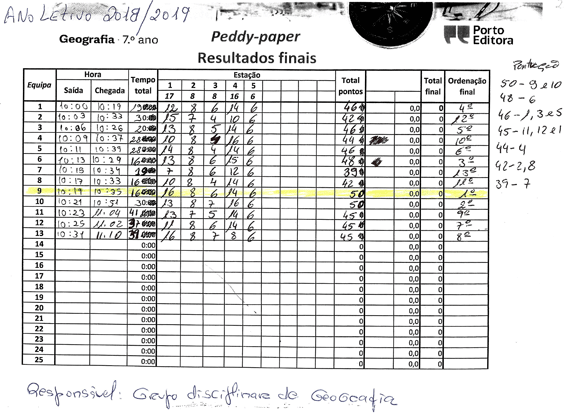 ANO LETIVO 2018/2019
Geografia · 7.º ano
Peddy-paper
Porto
Editora
Resultados finais
Pontuação
50 - 9 e 10
48 - 6
46 - 1, 3 e 5
45 - 11, 12 e 1
44 - 4
42 - 2, 8
39 - 7
Equipa Hora Tempo total Estação Total pontos Total final Ordenação final
Saída Chegada 1 2 3 4 5
17 8 8 16 6
1 10:00 10:19 19 12 8 6 14 6 46 0,0 0 4º
2 10:03 10:33 30 15 7 4 10 6 42 0,0 0 12º
3 10:06 10:26 20 13 8 5 14 6 46 0,0 0 5º
4 10:09 10:37 28 10 8 14 6 44 0,0 0 10º
5 10:11 10:39 28 14 8 4 14 6 46 0,0 0 6º
6 10:13 10:29 16 13 8 6 15 6 48 0,0 0 3º
7 10:34 7 8 6 12 6 39 0,0 0 13º
8 10:17 10:33 16 10 8 4 14 6 42 0,0 0 11º
9 10:19 10:35 16 16 8 6 14 6 50 0,0 0 1º
10 10:21 10:51 30 13 8 7 16 6 50 0,0 0 2º
11 10:23 11.04 41 13 7 5 14 6 45 0,0 0 9º
12 10:25 11.02 37 11 8 6 14 6 45 0,0 0 7º
13 10:31 11.10 16 8 7 8 6 45 0,0 0 8º
14 0:00 0 0,0 0
15 0:00 0 0,0 0
16 0:00 0 0,0 0
17 0:00 0 0,0 0
18 0:00 0 0,0 0
19 0:00 0 0,0 0
20 0:00 0 0,0 0
21 0:00 0 0,0 0
22 0:00 0 0,0 0
23 0:00 0 0,0 0
24 0:00 0 0,0 0
25 0:00 0 0,0 0
Responsável: Grupo disciplinar de Geografia